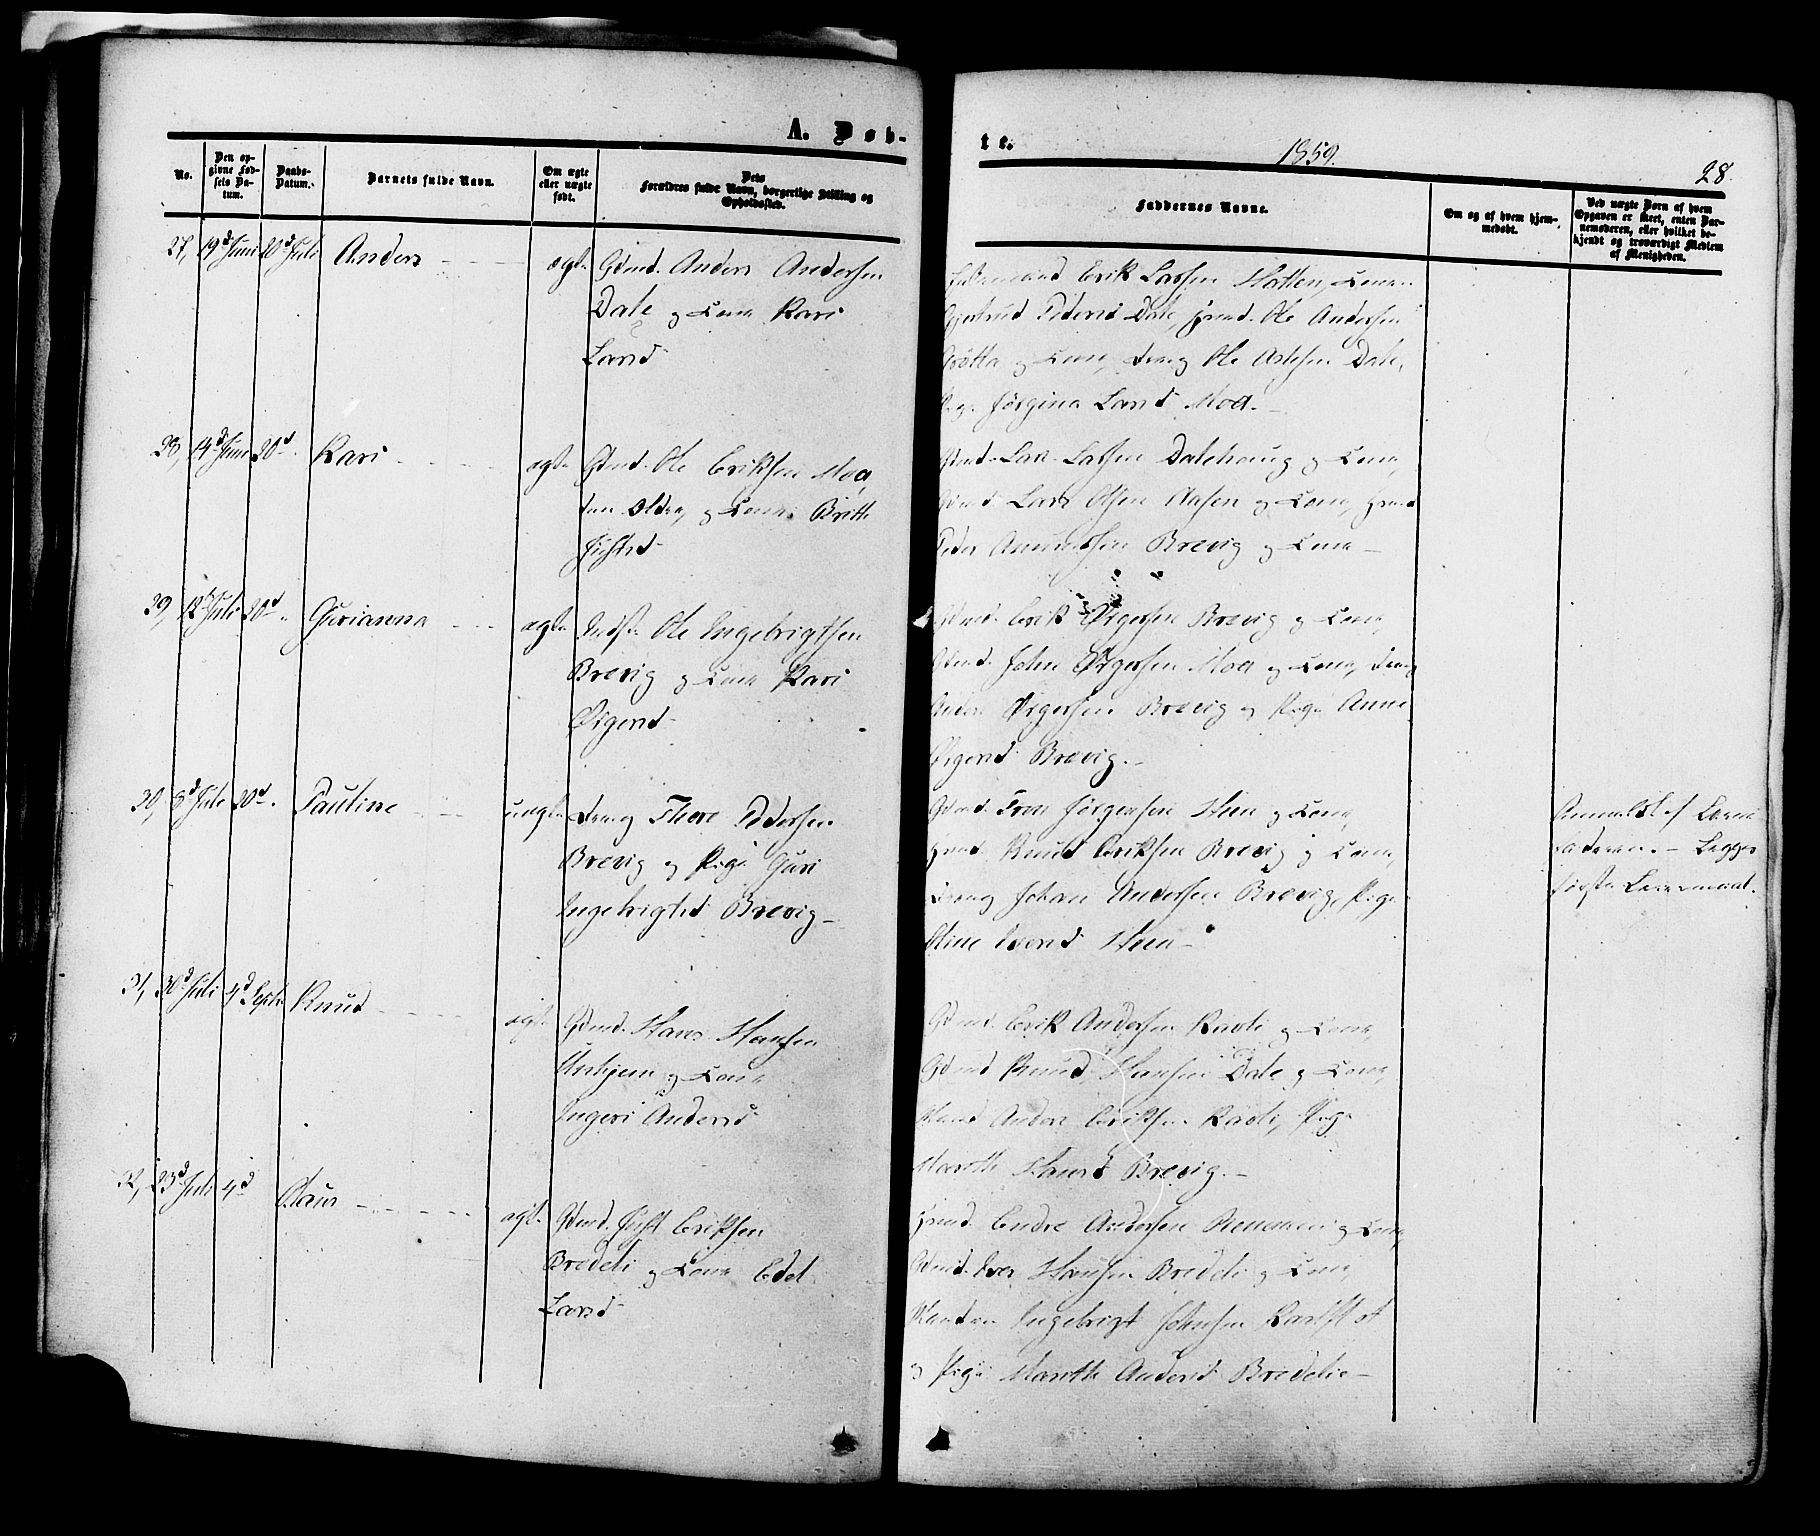 A. Døb-
te.
1859.
28
No.
Den op-
givne Fød-
sels Da-
tum.
Daabs-
Datum.
Barnets fulde Navn.
Om ægte
eller uægte
født.
Dets
Forældres fulde Navn, borgerlige Stilling og
Opholdssted.
Faddernes Navne.
Om og af hvem hjem-
medøbt.
Ved uægte Børn af hvem
Opgaven er skeet, enten Bar-
nemoderen, eller hvilket be-
kjendt og troværdigt Medlem
af Menigheden.
27, 19d Juni 20d Juli Anders ægte Gdmd. Anders Andersen
Dale og Kone Kari
Larsd
Erik Larsen Hatten, Konen
Gjertrud Pedersd Dale, Ole Andersen
og Kone, Dreng Ole Dale,
Pige Jørgina Larsd Moa.
28, 14d Juni 20d. Kari ægte Gdmd. Ole Eriksen Moa,
og Kone Britte
Gdmd. Lars Larsen Dalehaug og Kone,
Gdmd Lars Olsen Aasen og Kone,
Peder Brevig og Kone
29, 12d Juli 20d. Gurianna ægte Inds. Ole Ingebrigtsen
Brevig og Kone Kari
Ørgersd
Gdmd. Erik Ørgersen Brevig og Kone,
Gdmd. John Ørgersen Moa og Kone, Dreng
Ørgersen Brevig og Pige Anne
Ørgersd Brevig.
30, 8d Juli 20d. Pauline uægte Dreng Thore Pedersen
Brevig og Pige Guri
Ingebrigtsd Brevig
Gdmd. Iver Jørgensen Hen og Kone,
Knud Eriksen Brevig og Kone,
Dreng Johan Andersen Brevig, Pige
Stine Iversd Hen
Anmeldt af Barne
faderen. Begges
første Leiermaal.
31, 30d Juli 4d Sept. Knud ægte Gdmd. Hans Hansen
Unhjem og Kone
Ingeri Andersd
Gdmd. Erik Andersen Ravli og Kone,
Gdmd Knud Hansen Dale og Kone,
Eriksen Ravli, Pige
Marith Hansd Brevig.
32, 23d Juli 4d ægte Gdmd. Eriksen
Bredeli og Kone Edel
Larsd
Endre Andersen og Kone,
Gdmd. Iver Hansen Bredeli og Kone,
Ingebrigt Johnsen
og Pige Marith Andersd Bredelie